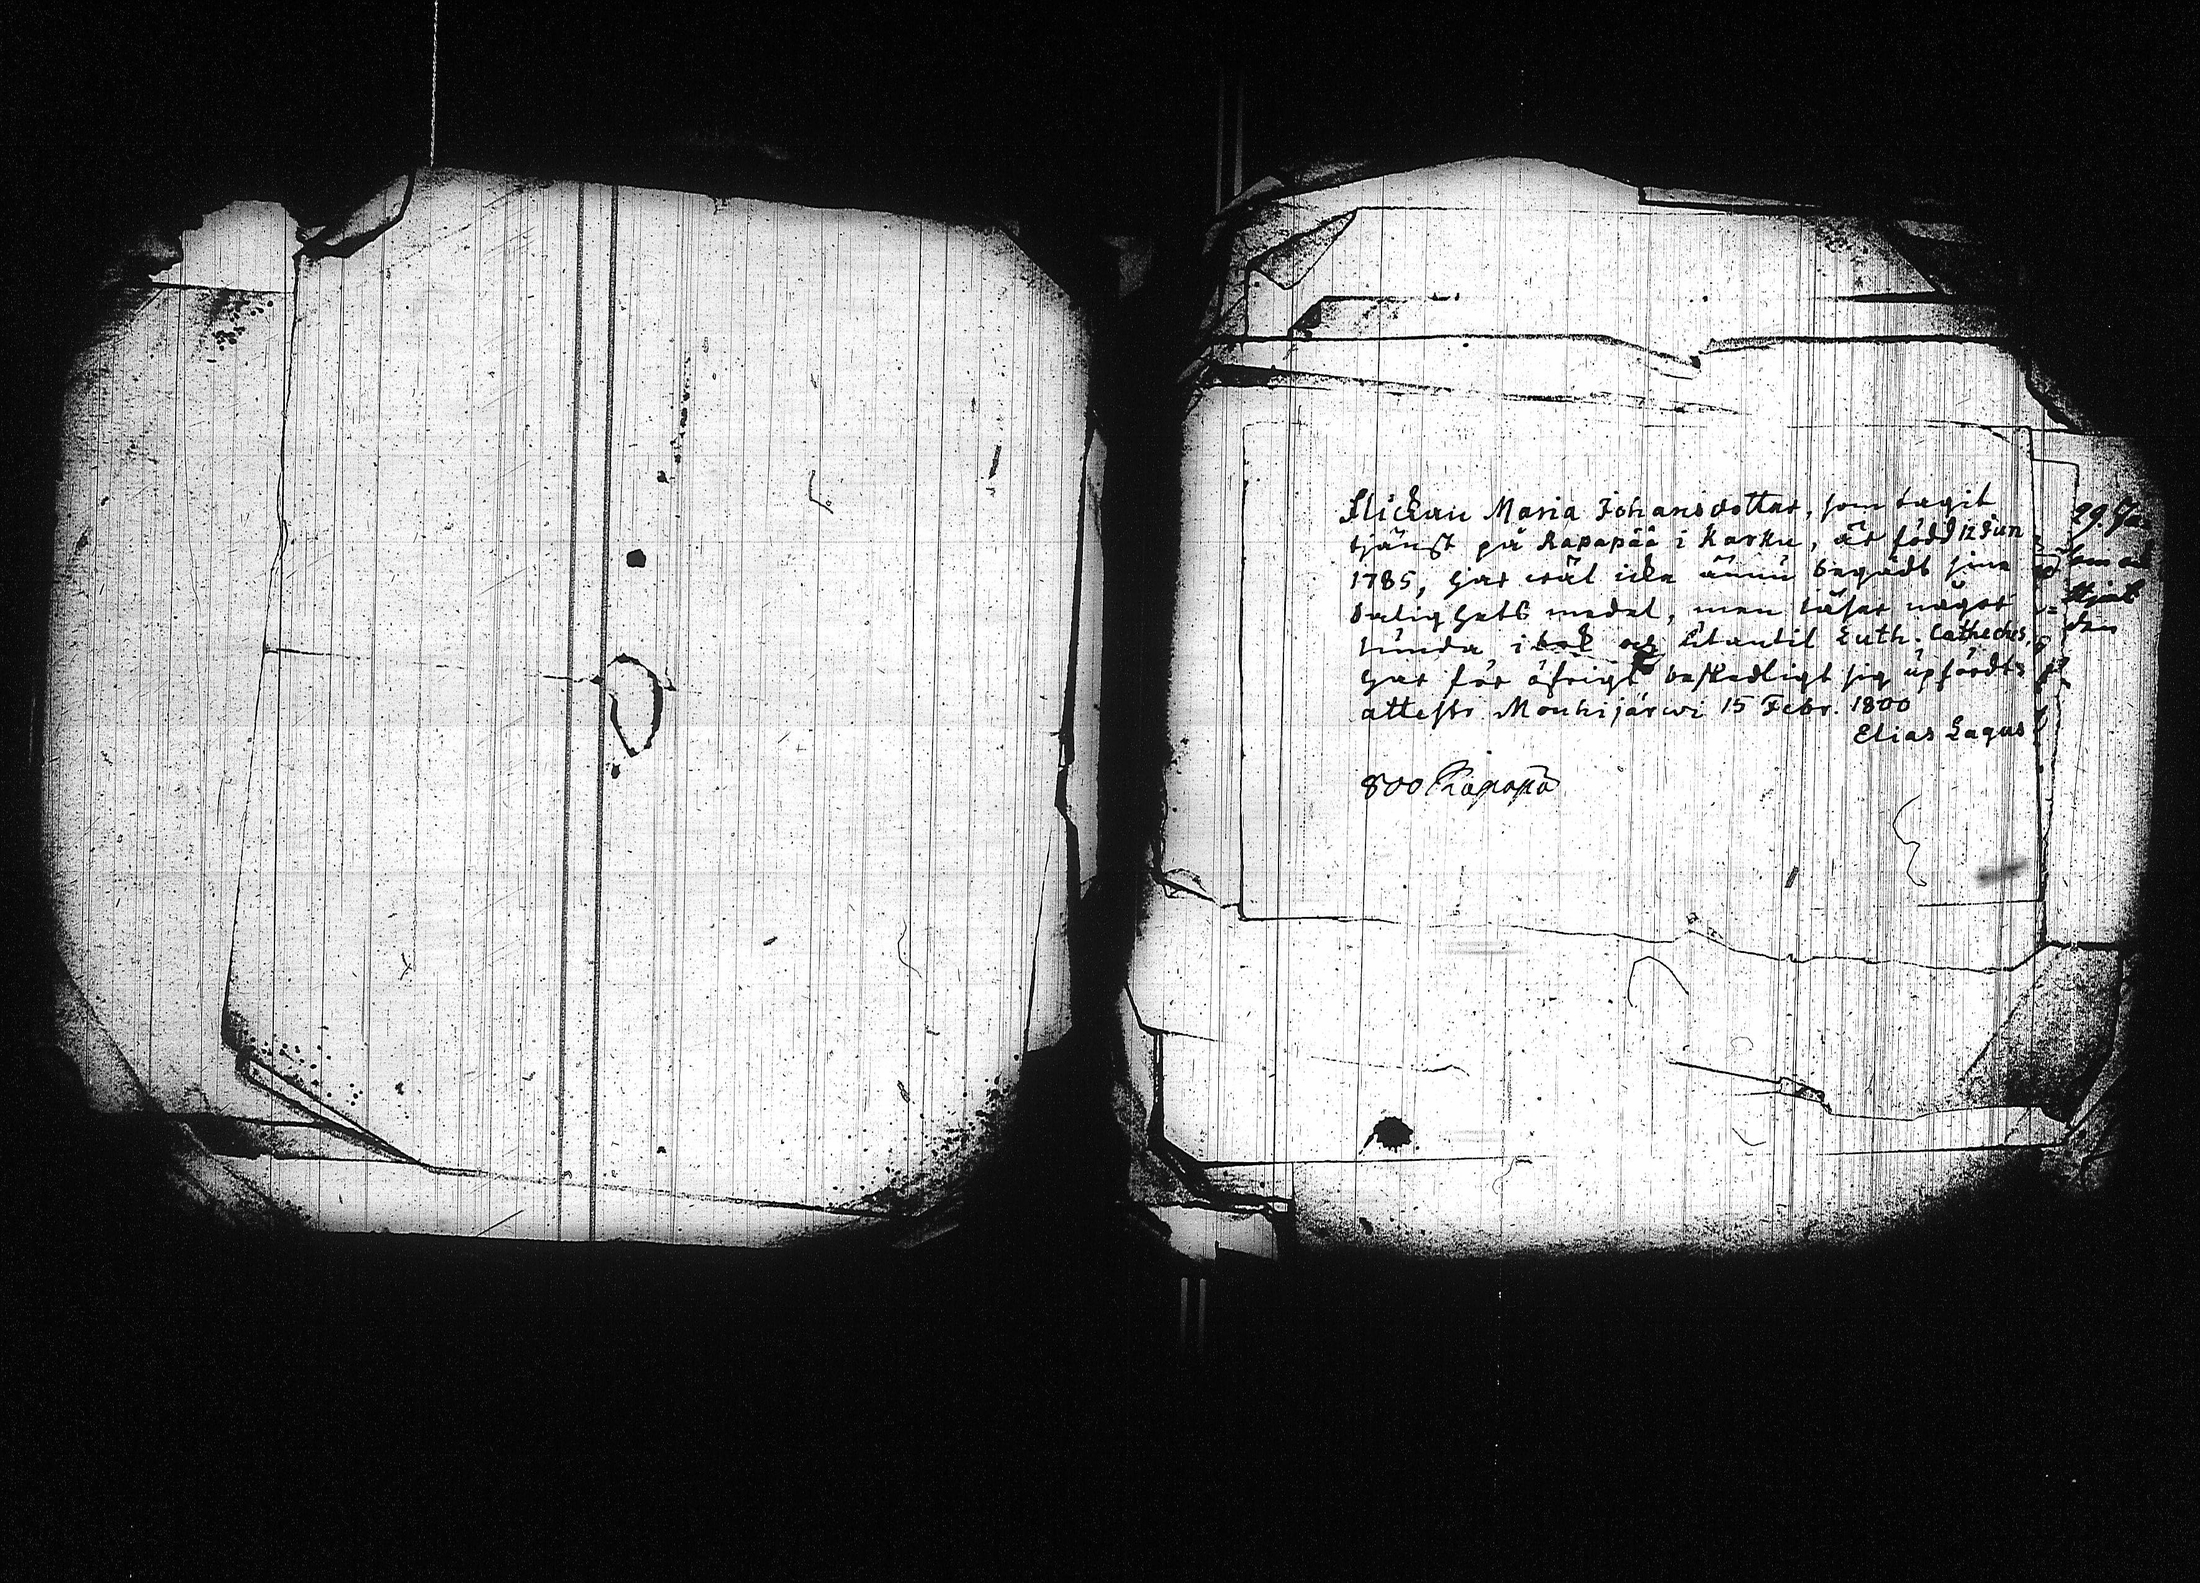 Flickan Maria Johansdotter, som tagit
tjänst på Rapapää i Karku, är född 12 Jun
1785, har wäl icke ännu begådt sina
Salighets medel, men läser någor
lunda i bok och utantil Luth. Cateches,
har för öfrigt beskedligt sig upfördt,
attestr. Mouhijärwi 15 Febr. 1800
Elias Lagus
800 Rapapä
29
den